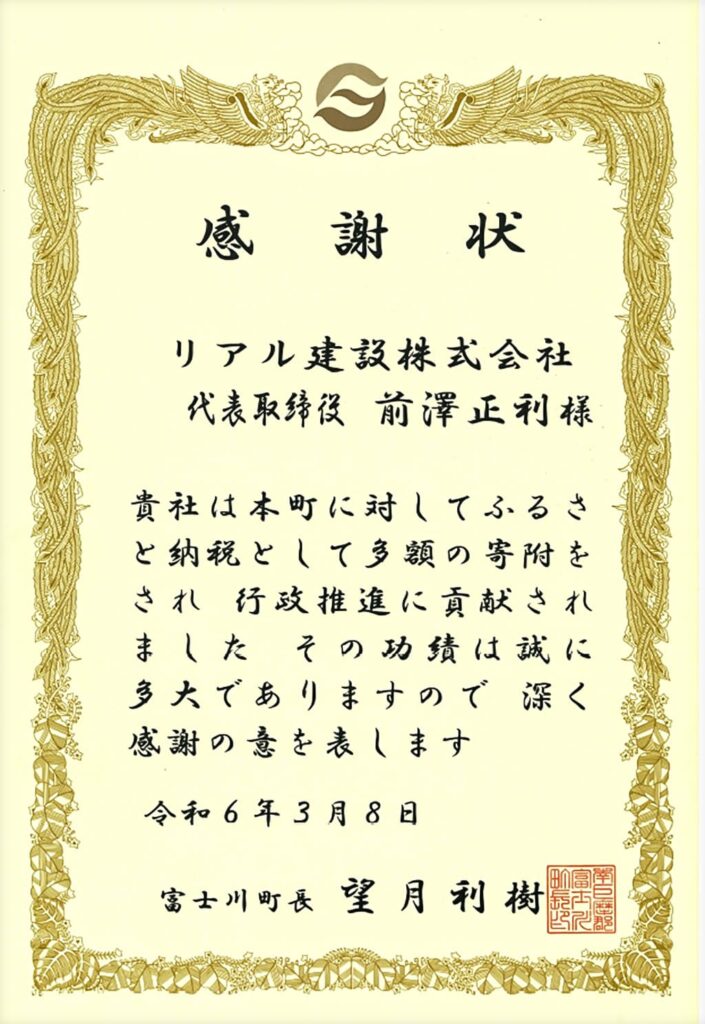 感謝状
リアル建設株式会社
代表取締役 前澤正利様
貴社は本町に対してふるさ
と納税として多額の寄附を
され 行政推進に貢献され
ました その功績は誠に
多大でありますので 深く
感謝の意を表します
令和6年3月8日
富士川町長 望月利樹
南巨摩郡
富士川
町長印